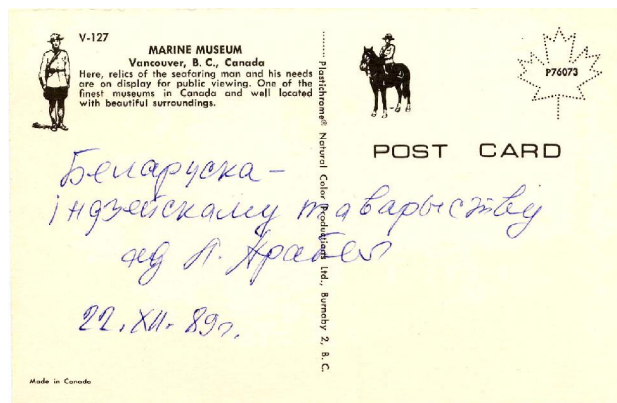 V-127
MARINE MUSEUM
Vancouver, B. C., Canada
Here, relics of the seafaring man and his needs
are on display for public viewing. One of the
finest museums in Canada and well located
with beautiful surroundings.
Plastichrome® Natural Color Productions Ltd., Burnaby 2, B. C.
P76073
POST CARD
Беларуска-
індзейскаму таварыству
ад Л.
22.XII.89г.
Made in Canada